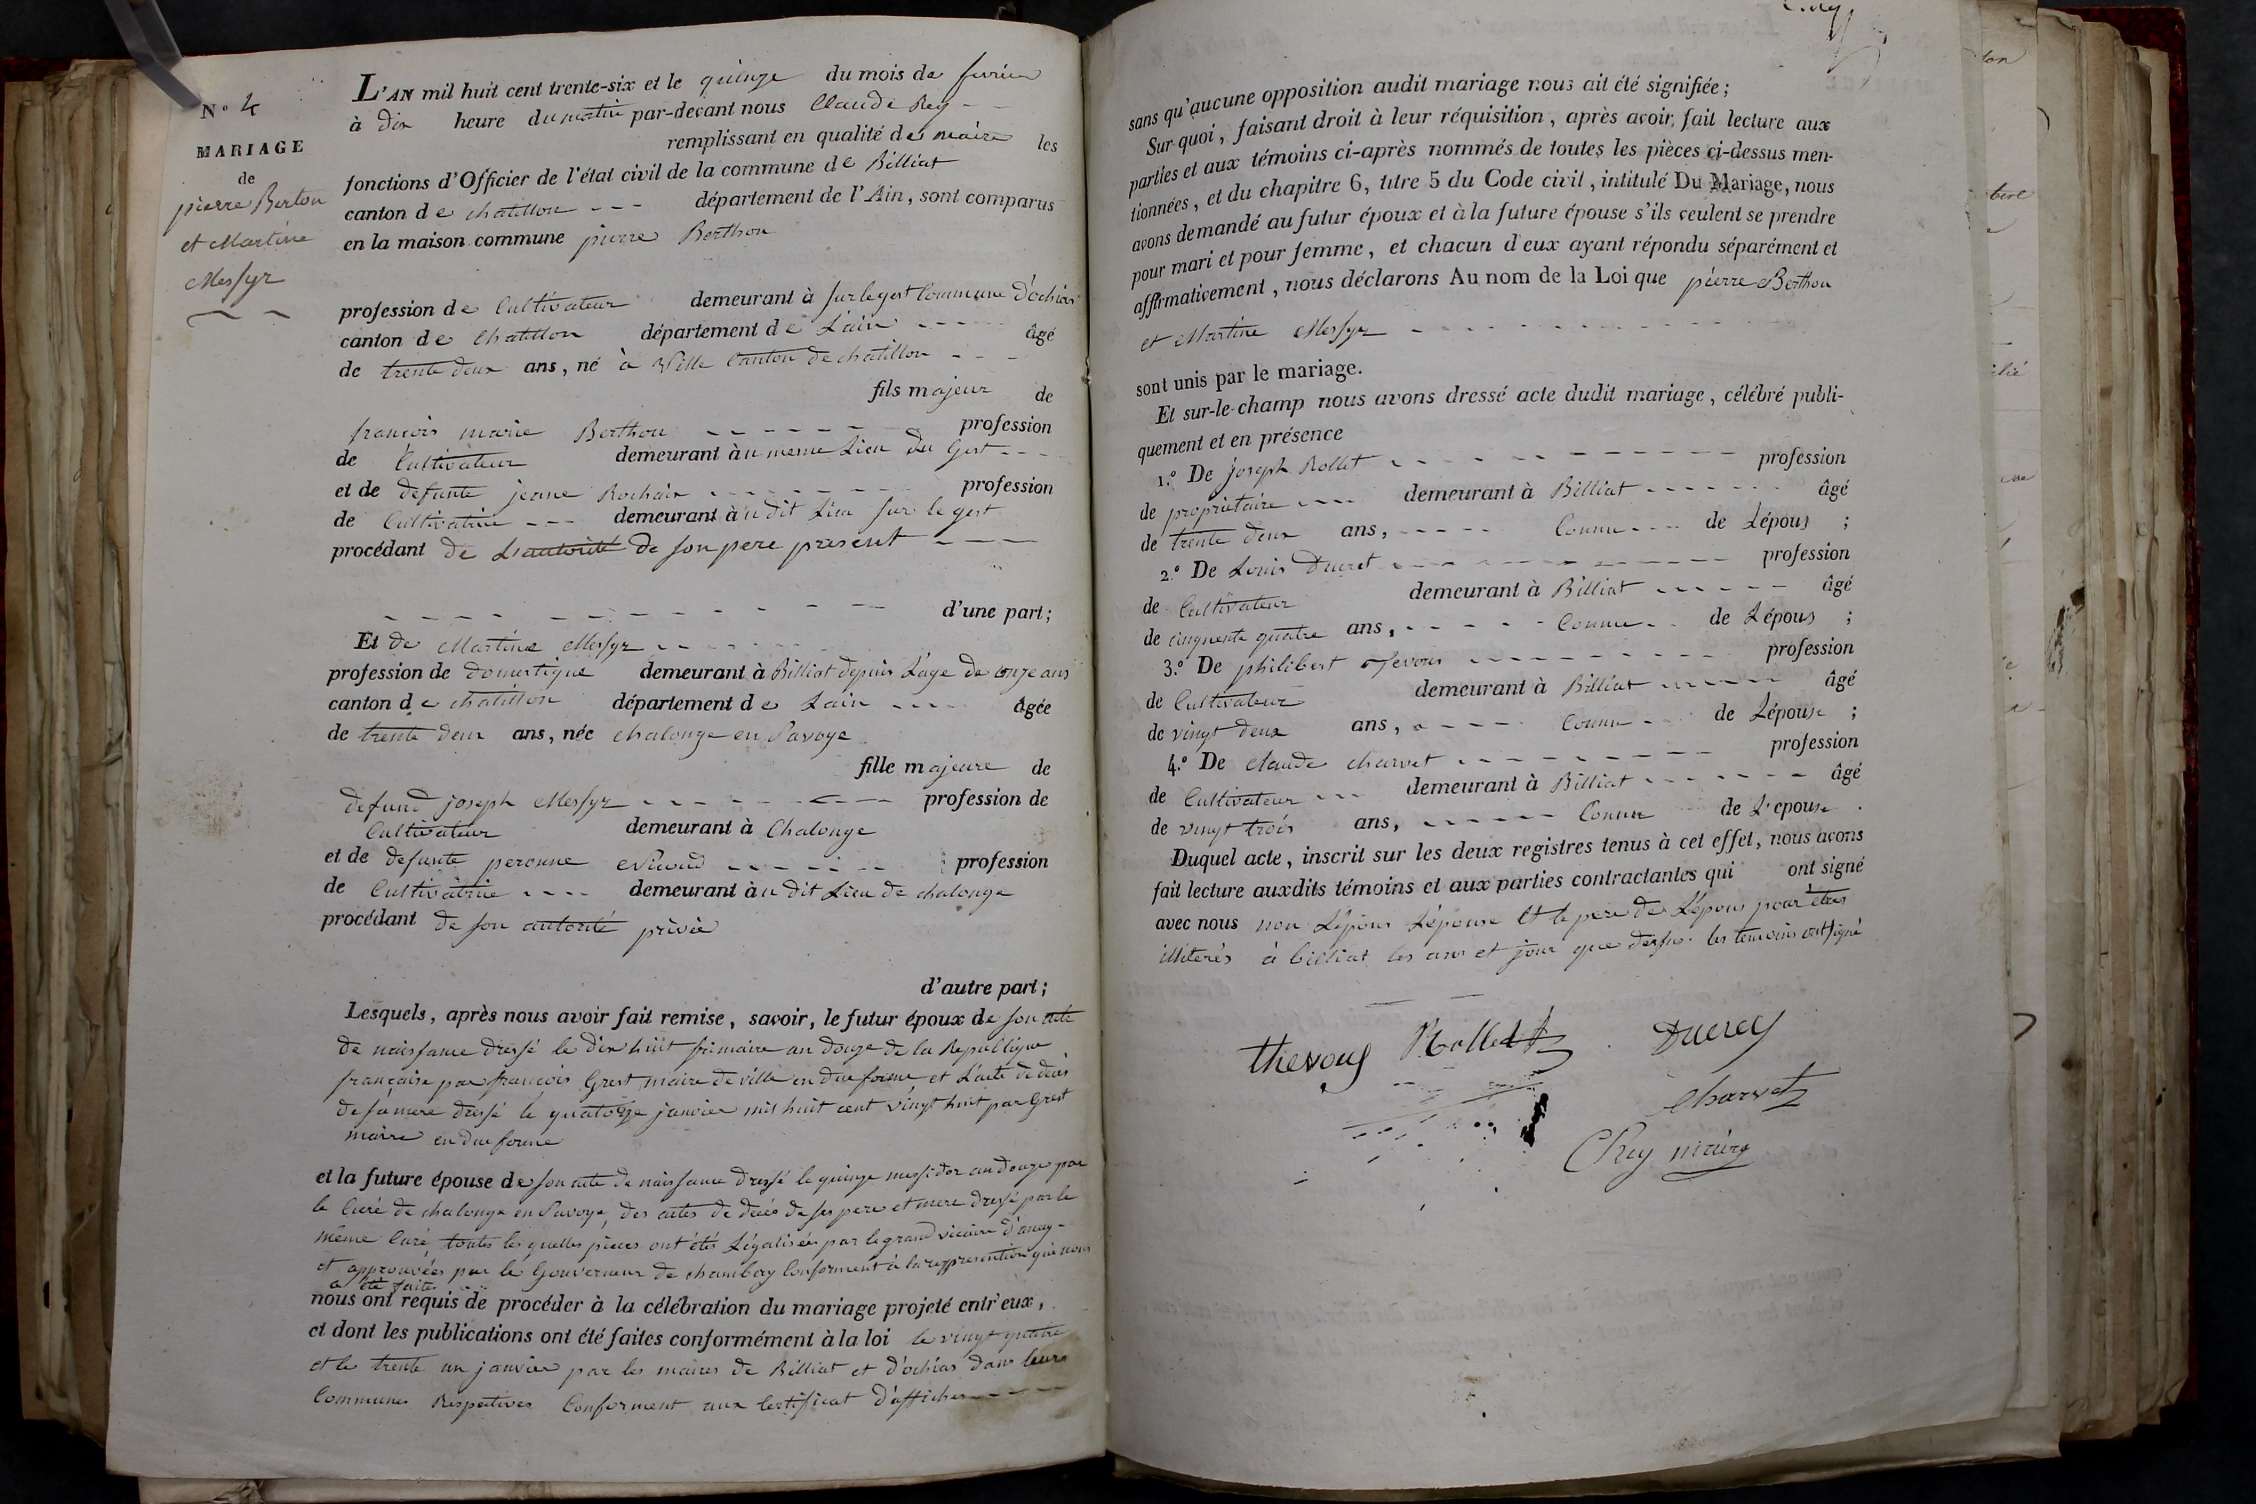 N° 4
MARIAGE
de
pierre Berton
et Martine
Messyz
L'AN mil huit cent trente-six et le quinze du mois de fevrier
à dix heure du matin par-devant nous Claude Rey
remplissant en qualité de maire les
fonctions d'Officier de l'état civil de la commune de Billiat
canton de chatillon département de l'Ain, sont comparus
en la maison commune pierre Berthon
profession de Cultivateur demeurant à sur le gest Commune d'ochias
canton de Chatillon département de L'ain âgé
de trente deux ans, né à Ville Canton de chatillon
fils majeur de
francois marie Berthon profession
de Cultivateur demeurant àu meme Lieu du Gest
et de defunte jeane Rochaix profession
de Cultivatrice demeurant àudit Lieu sur le gest
procédant de L'autorité de son pere present
d'une part;
Et de Martine Messyz
profession de domestique demeurant à Billiat depuis L'age de onze ans
canton de chatillon département de Lain âgée
de trente deux ans, née chalonge en Savoye
fille majeure de
defund joseph Messyz profession de
Cultivateur demeurant à Chalonge
et de defunte peronne profession
de Cultivatrice demeurant àu dit Lieu de chalonge
procédant de son autorité privée
d'autre part;
Lesquels, après nous avoir fait remise, savoir, le futur époux de son acte
de naissance dressé le dix huit frimaire an douze de la Republique
française par françois Grest maire de ville en due forme et L'acte de decès
de sa mere dressé le quatorze janvier mil huit cent vingt huit par Grest
maire en due forme
et la future épouse de son acte de naissance dressé le quinze messidor an douze par
le Curé de chalonge en Savoye, des actes de decès de ses pere et mere dressé par le
même Curé, toutes les quelles pieces ont étés Légalisées par le grand vicaire d'anecy
et approuvées par le Gouverneur de chambery Conforment à la representation qui nous
a été faite
nous ont requis de procéder à la célébration du mariage projeté entr'eux,
et dont les publications ont été faites conformément à la loi le vingt quatre
et le trente un janvier par les maires de Billiat et d'ochias dans leurs
Communes Respectives Conforment aux Certificat d'affiches
sans qu'aucune opposition audit mariage nous ait été signifiée;
Sur quoi, faisant droit à leur réquisition, après avoir fait lecture aux
parties et aux témoins ci-après nommés de toutes les pièces ci-dessus men-
tionnées, et du chapitre 6, titre 5 du Code civil, intitulé Du Mariage, nous
avons demandé au futur époux et à la future épouse s'ils veulent se prendre
pour mari et pour femme, et chacun d'eux ayant répondu séparément et
affirmativement, nous déclarons Au nom de la Loi que pierre Berthon
et Martine Messyz
sont unis par le mariage.
Et sur-le-champ nous avons dressé acte dudit mariage, célébré publi-
quement et en présence
1.° De joseph Rollet profession
de propriétaire demeurant à Billiat âgé
de trente deux ans, Connu de Lépoux ;
2.° De Louis Ducret profession
de Cultivateur demeurant à Billiat âgé
de cinquente quatre ans, Connu de Lépoux ;
3.° De philibert profession
de Cultivateur demeurant à Billiat âgé
de vingt deux ans, Connu de Lépouse ;
4.° De claude charvet profession
de Cultivateur demeurant à Billiat âgé
de vingt trois ans, Connu de L'epouse .
Duquel acte, inscrit sur les deux registres tenus à cet effet, nous avons
fait lecture auxdits témoins et aux parties contractantes qui ont signé
avec nous non L'épous L'épouse Et le pere de L'épous pour être
illiterés à billiat les ans et jour que dessus les temoins ont signé
thevouy Rollet Ducrey
Charvet
C Rey maire